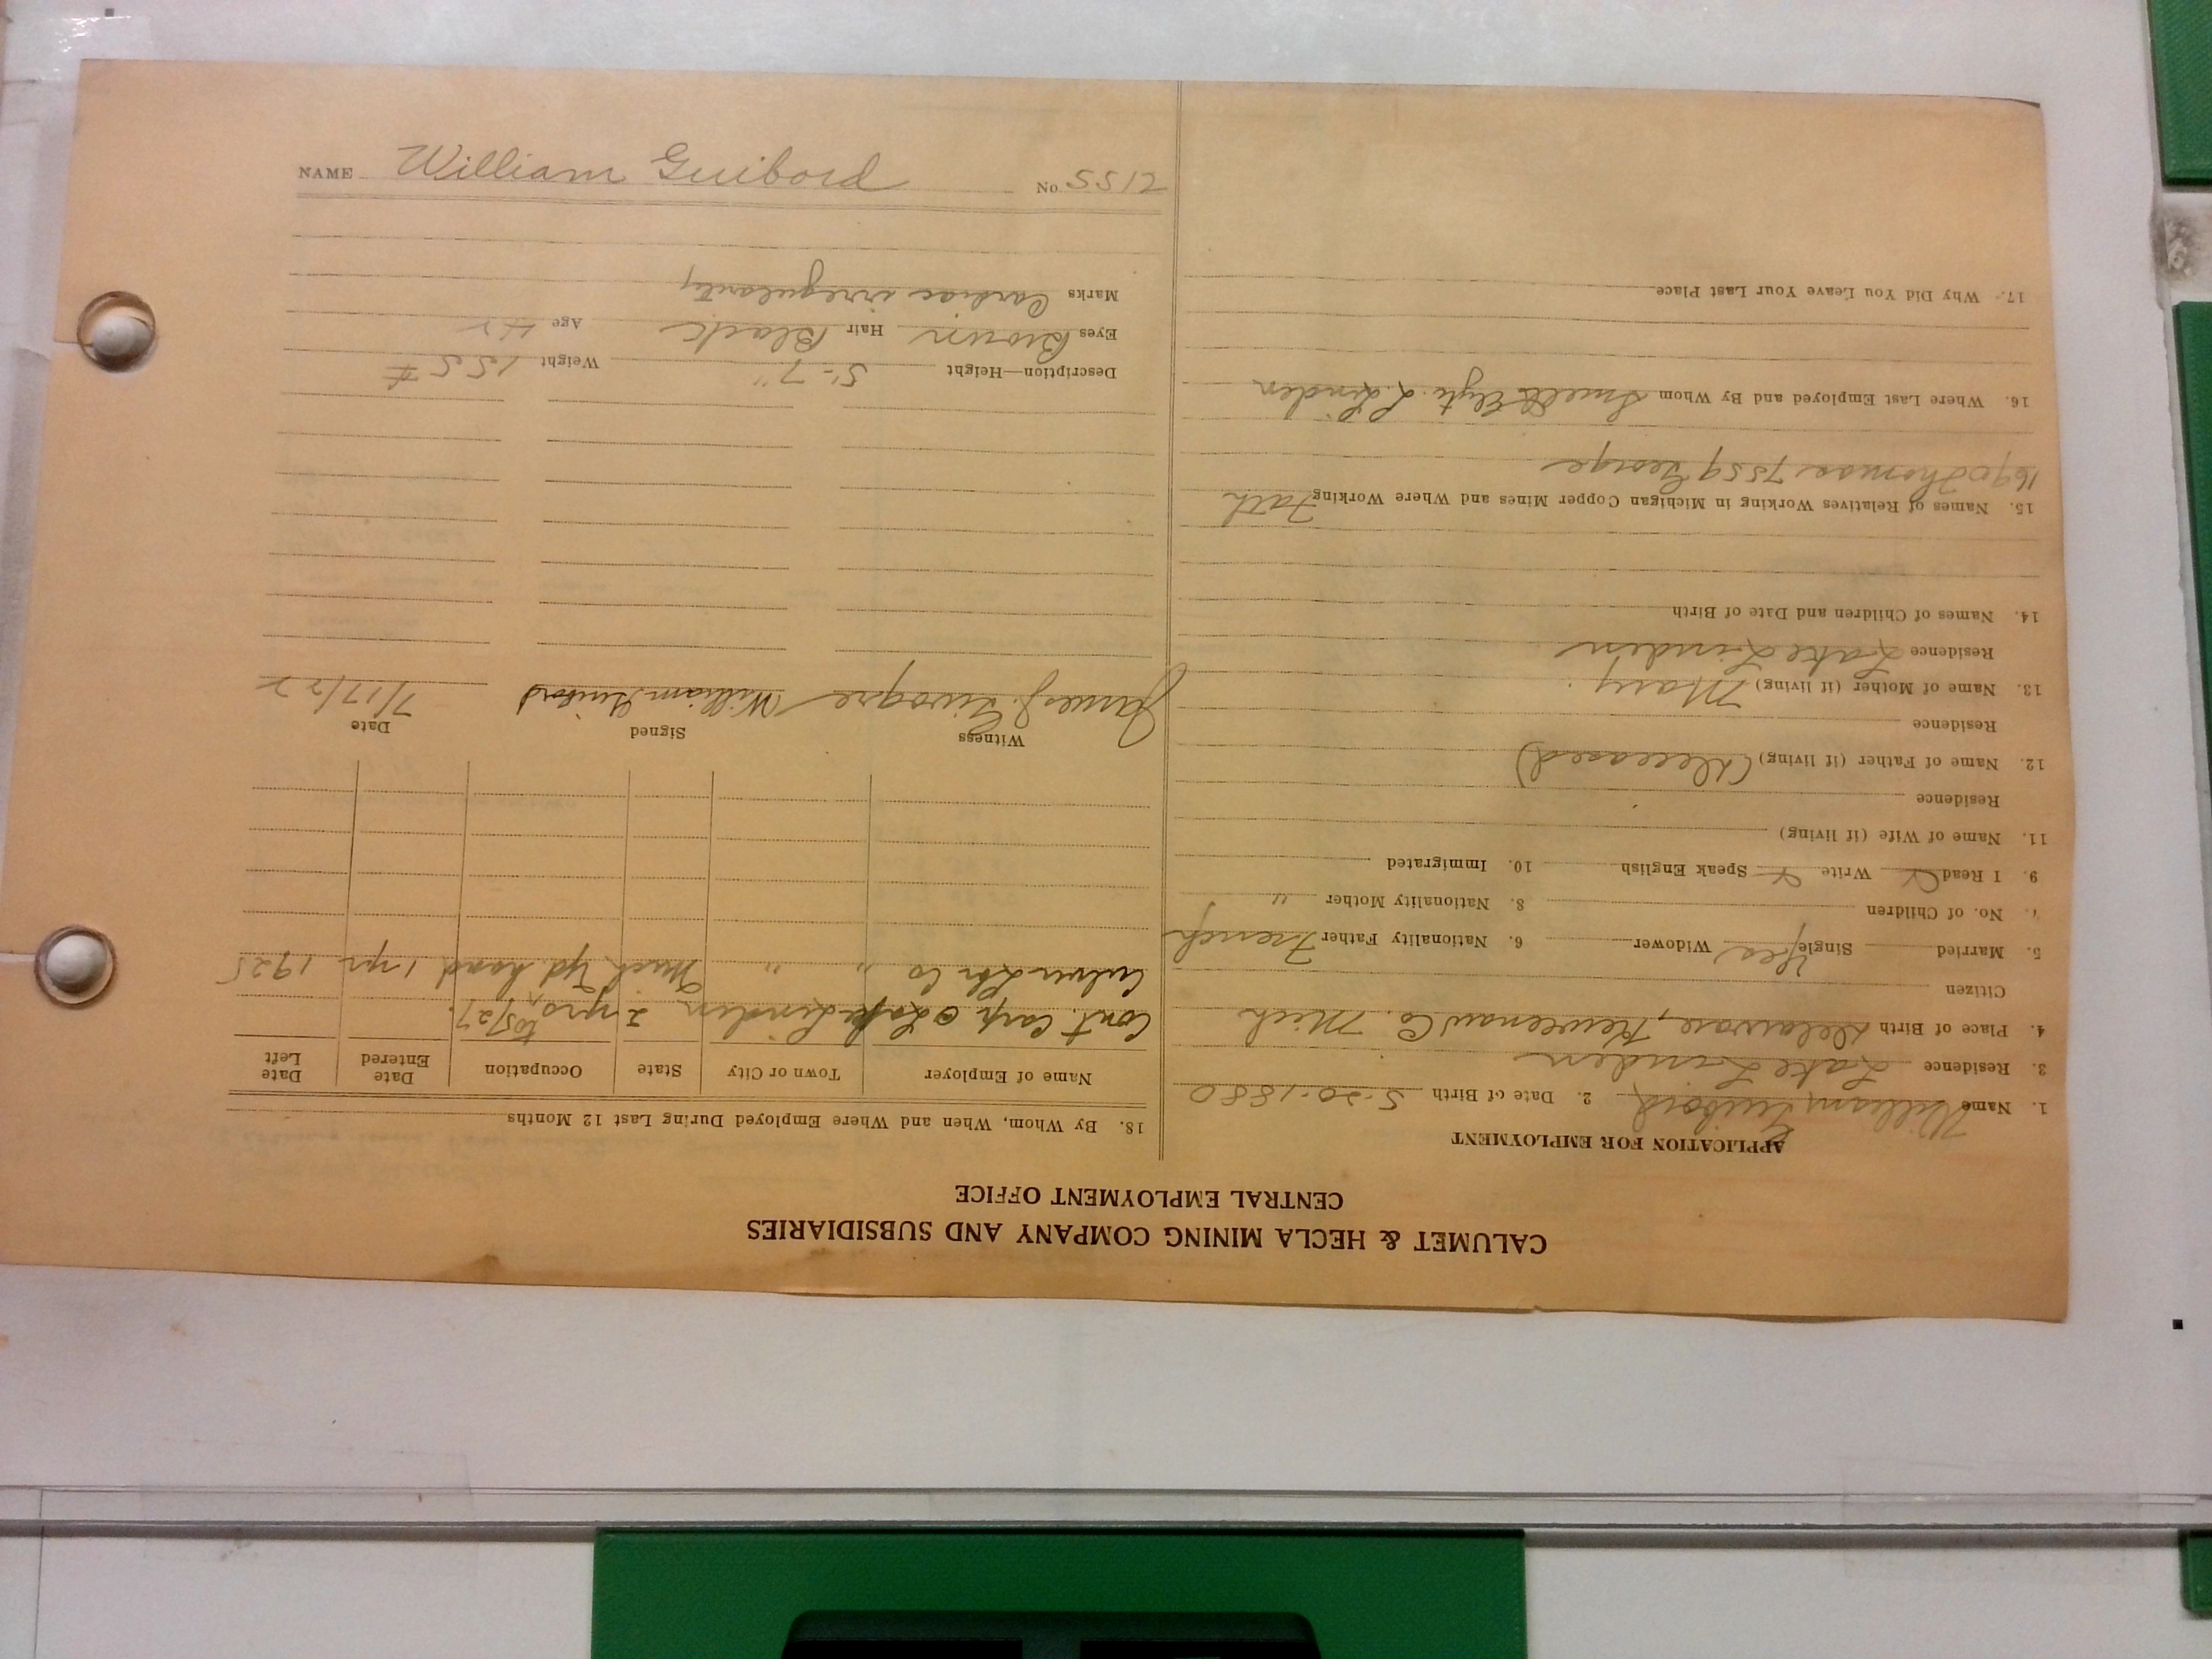 NAME William Guibord No. 5512
CALUMET & HECLA MINING COMPANY AND SUBSIDIARIES
CENTRAL EMPLOYMENT OFFICE
APPLICATION FOR EMPLOYMENT
1. Name William Guibord 2. Date of Birth 5-20-1880
3. Residence Lake Linden
4. Place of Birth Delaware, Keweenaw Co. Mich
Citizen
5. Married Single Yes Widower 6. Nationality Father French
7. No. of Children 8. Nationality Mother "
9. I Read Write Speak English 10. Immigrated
11. Name of Wife (if living)
Residence
12. Name of Father (if living) (Deceased)
Residence
13. Name of Mother (if living) Mary
Residence Lake Linden
14. Names of Children and Date of Birth
15. Names of Relatives Working in Michigan Copper Mines and Where Working
1690 Thomas 7559 George
16. Where Last Employed and By Whom L. Linden
17. Why Did You Leave Your Last Place
18. By Whom, When and Where Employed During Last 12 Months
Name of Employer Town or City State Occupation Date Entered Date Left
Cont. Carp Lake Linden 2 yrs, to 5/27.
Co " " Mich. Yd. hand 1 yr 1925
Witness Signed Date
James J. William Guibord 7/17/22
Description—Height 5'-7" Weight 155 #
Eyes Brown Hair Black Age 42
Marks Cardiac irregularity